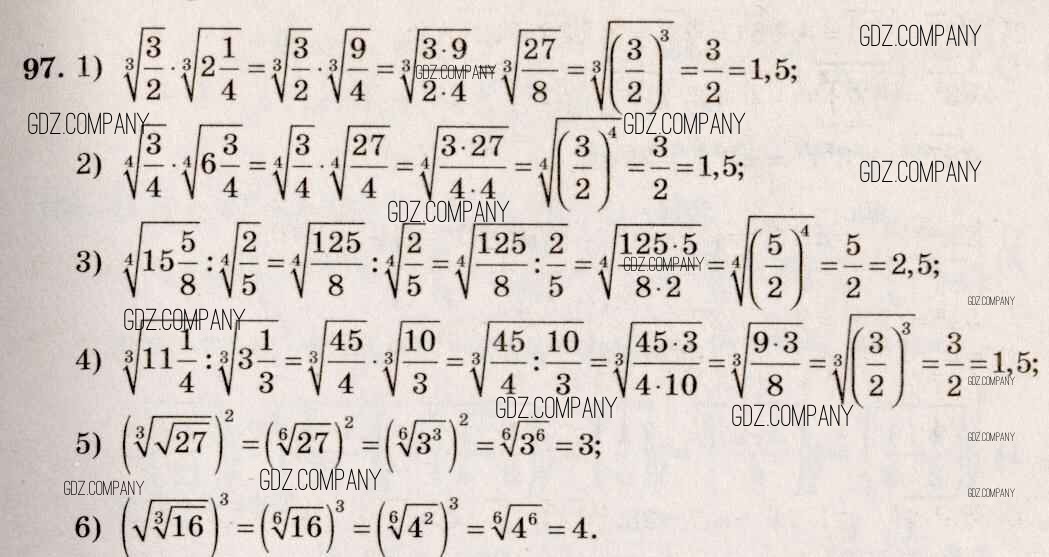 97. 1) ∛(3/2) · ∛(2 1/4) = ∛(3/2) · ∛(9/4) = ∛((3·9)/(2·4)) = ∛(27/8) = ∛((3/2)³) = 3/2 = 1,5;
GDZ.COMPANY
GDZ.COMPANY
GDZ.COMPANY
GDZ.COMPANY
2) ∜(3/4) · ∜(6 3/4) = ∜(3/4) · ∜(27/4) = ∜((3·27)/(4·4)) = ∜((3/2)⁴) = 3/2 = 1,5;
GDZ.COMPANY
GDZ.COMPANY
3) ∜(15 5/8) : ∜(2/5) = ∜(125/8) : ∜(2/5) = ∜(125/8 : 2/5) = ∜((125·5)/(8·2)) = ∜((5/2)⁴) = 5/2 = 2,5;
GDZ.COMPANY
GDZ.COMPANY
GDZ.COMPANY
4) ∛(11 1/4) : ∛(3 1/3) = ∛(45/4) · ∛(10/3) = ∛(45/4 : 10/3) = ∛((45·3)/(4·10)) = ∛((9·3)/8) = ∛((3/2)³) = 3/2 = 1,5;
GDZ.COMPANY
GDZ.COMPANY
GDZ.COMPANY
5) (∛(√27))² = (⁶√27)² = (⁶√(3³))² = ⁶√(3⁶) = 3;
GDZ.COMPANY
GDZ.COMPANY
GDZ.COMPANY
GDZ.COMPANY
6) (√(∛16))³ = (⁶√16)³ = (⁶√(4²))³ = ⁶√(4⁶) = 4.